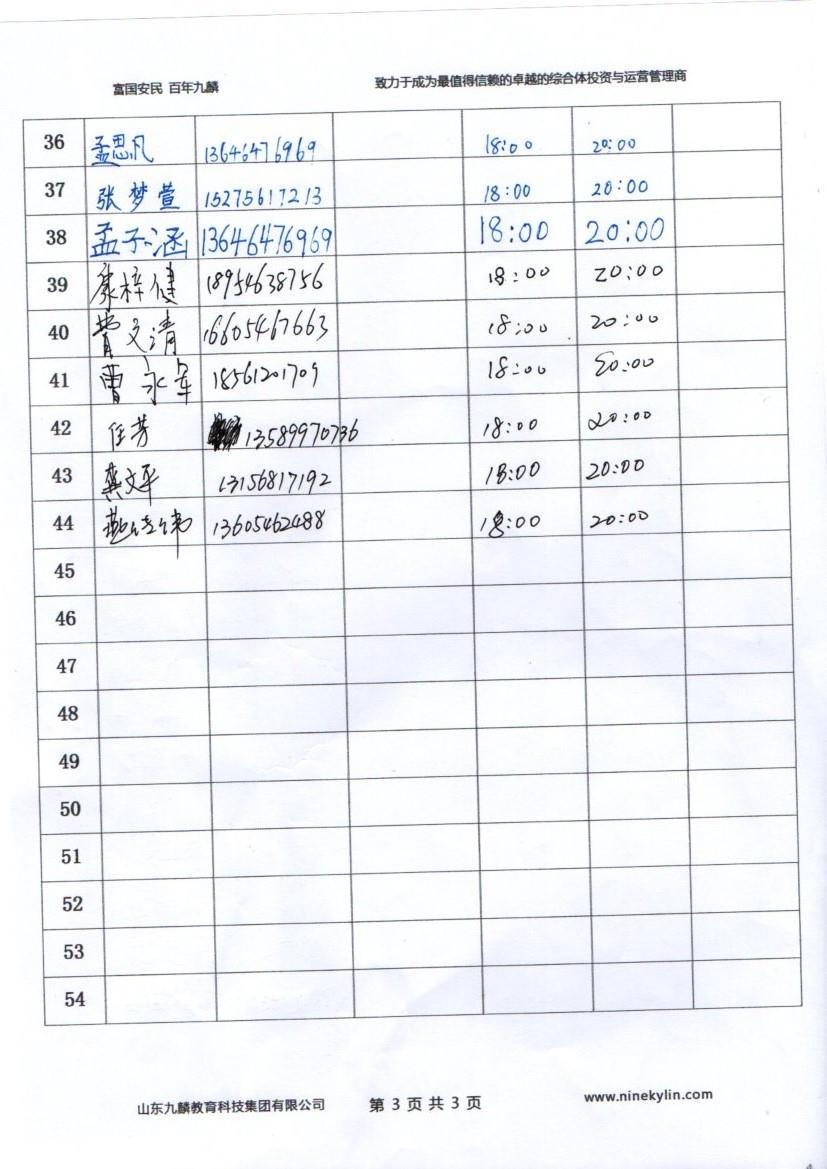 富国安民 百年九麟 致力于成为最值得信赖的卓越的综合体投资与运营管理商
36 孟思凡 13646476969 18:00 20:00
37 张梦萱 15275617213 18:00 20:00
38 孟子涵 13646476969 18:00 20:00
39 康梓健 18954638756 18:00 20:00
40 曹文清 16605467663 18:00 20:00
41 曹永军 18561201709 18:00 20:00
42 任芳 13589970736 18:00 20:00
43 龚文平 13156817192 18:00 20:00
44 13605462488 18:00 20:00
45
46
47
48
49
50
51
52
53
54
山东九麟教育科技集团有限公司 第 3 页 共 3 页 www.ninekylin.com